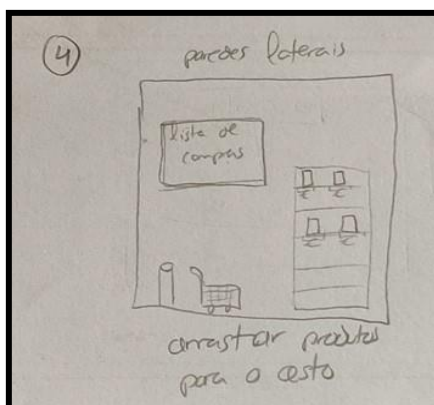 4
paredes laterais
lista de
compras
arrastar produtos
para o cesto